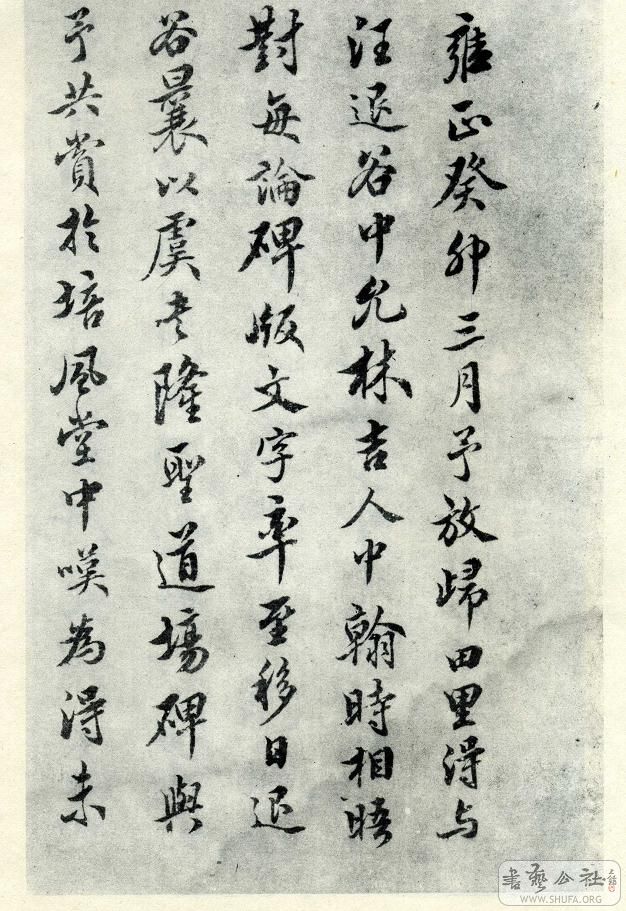 雍正癸卯三月予放歸田里得与
汪退谷中允林吉人中翰時相晤
對每論碑版文字率至移日退
谷曩以虞書隆聖道場碑與
予共賞於培風堂中嘆為得未
書藝公社
WWW.SHUFA.ORG